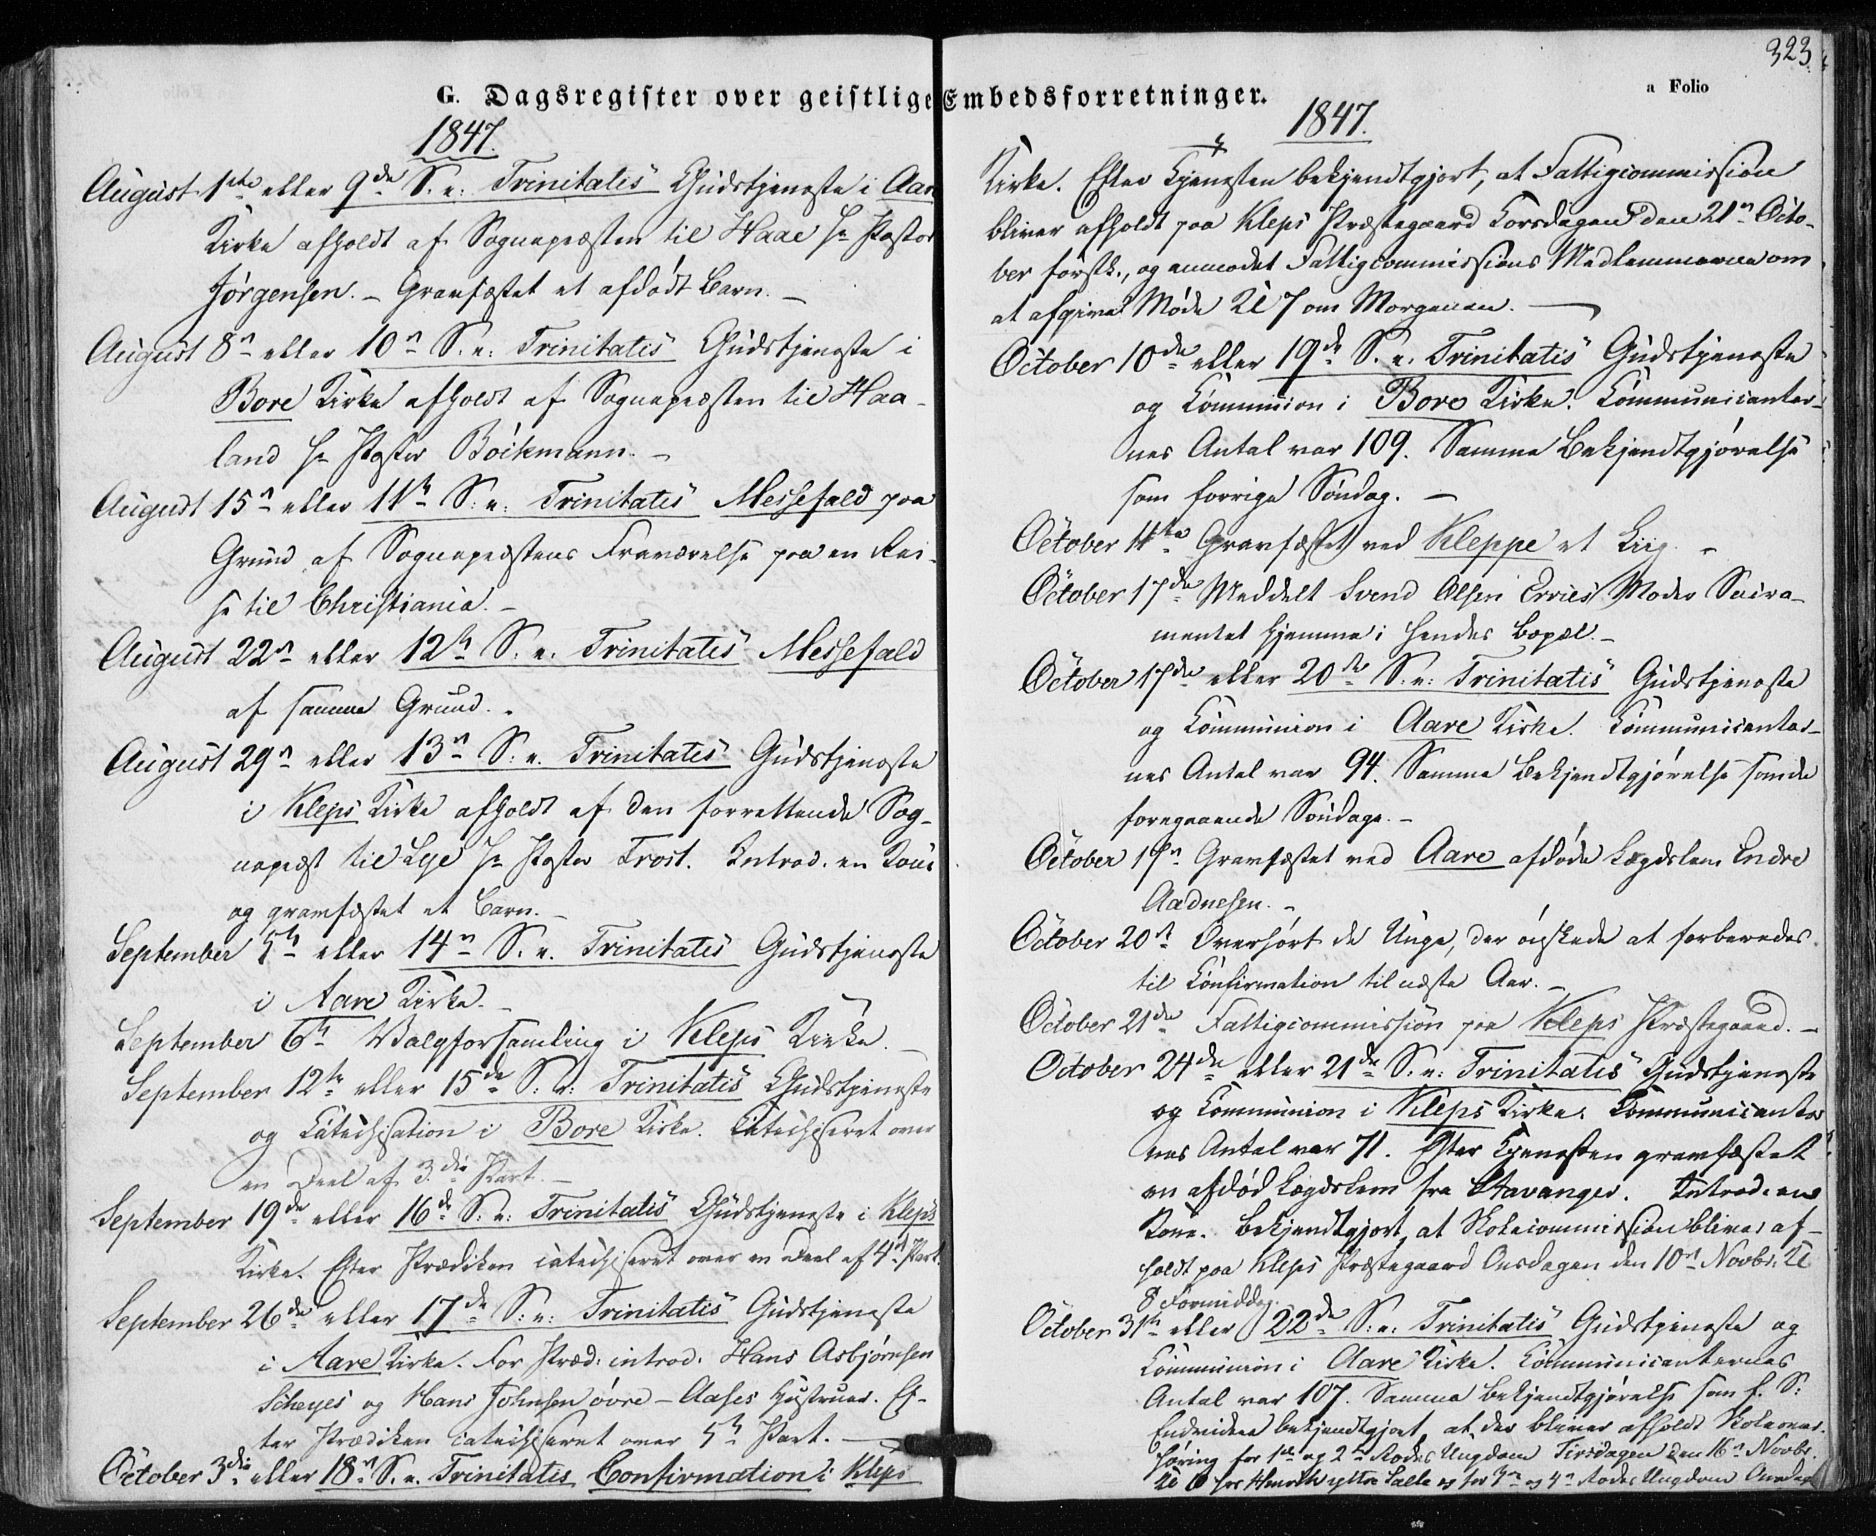 G. Dagsregister over geistlige Embedsforretninger.
a Folio
323.
1847.
August 1ste eller 9de S. e. Trinitatis Gudstjeneste i Aare
Kirke afholdt af Sognepræsten til Haae Hr Pastor
Jørgensen. – Gravfæstet et afdødt Barn. –
August 8n eller 10n S. e. Trinitatis Gudstjeneste i
Bore Kirke afholdt af Sognepræsten til Haa-
land Hr Pastor Böckmann. –
August 15n eller 11te S: e: Trinitatis Messefald paa
Grund af Sognepræstens Fraværelse paa en Rei-
se til Christiania. –
August 22n eller 12te S: e. Trinitatis Messefald
af samme Grund. –
August 29n eller 13n S: e. Trinitatis Gudstjeneste
i Kleps Kirke afholdt af den forrettende Sog-
nepræst til Lye Hr Pastor Trost. Introd. en Kone
og gravfæstet et Barn. –
September 5te eller 14n S. e. Trinitatis Gudstjeneste
i Aare Kirke. –
September 6te Valgforsamling i Kleps Kirke. –
September 12te eller 15de S: e: Trinitatis Gudstjeneste
og Catechisation i Bore Kirke. Catechiseret over
en Deel af 3die Part. –
September 19de eller 16de S: e: Trinitatis Gudstjeneste i Kleps
Kirke. Efter Prædiken catechiseret over en Deel af 4de Part.
September 26de eller 17de S: e: Trinitatis Gudstjeneste
i Aare Kirke. For Præd: introd. Hans Asbjørnsen
Scheyes og Hans Johnsen övre-Aases Hustruer. Ef-
ter Prædiken catechiseret over 5te Part. –
October 3die eller 18n S. e. Trinitatis Confirmation i Kleps
1847.
Kirke. Efter Tjenesten bekjendtgjort, at Fattigcommission
bliver afholdt paa Kleps Præstegaard Torsdagen den 21n Octo-
ber förstk., og anmodet Fattigcommissions Medlemmerne om
at afgive Møde Kl 7 om Morgenen. –
October 10de eller 19de S. e. Trinitatis Gudstjeneste
og Communion i Bore Kirke. Communicanter-
nes Antal var 109. Samme Bekjendtgjørelse
som forrige Söndag. –
October 11te Gravfæstet ved Kleppe et Liig. –
October 17de Meddelt Svend Olsen Ervies Moder Sacra-
mentet hjemme i hendes Bopæl. –
October 17de eller 20de S: e: Trinitatis Gudstjeneste
og Communion i Aare Kirke. Communicanter-
nes Antal var 94. Samme Bekjendtgjørelse som de
foregaaende Söndage. –
October Gravfæstet ved Aare afdøde Lægdslem Endre
Aadnesen. –
October 20de Overhørt de Unge, der önskede at forberedes
til Confirmation til næste Aar. –
October 21de Fattigcommission paa Kleps Præstegaard. –
October 24de eller 21de S. e: Trinitatis Gudstjeneste
og Communion i Kleps Kirke. Communicanter
nes Antal var 71. Efter Tjenesten gravfæstet
en afdød Lægdslem fra Stavanger. Introd. en
Kone. Bekjendtgjort, at Skolecommission bliver af-
holdt paa Kleps Præstegaard Onsdagen den 10n Novbr. Kl
8 Formiddag.
October 31te eller 22de S: e: Trinitatis Gudstjeneste og
Communion i Aare Kirke. Communicanternes
Antal var 107. Samme Bekjendtgjørelse som f. S:
Endvidere bekjendtgjort, at der bliver afholdt Skoleover-
høring for 1ste og 2de Rodes Ungdom Tirsdagen den 16n Novbr.
Kl hos Henrik ytre Salte og for og 4n Rodes Ungdom Onsdag